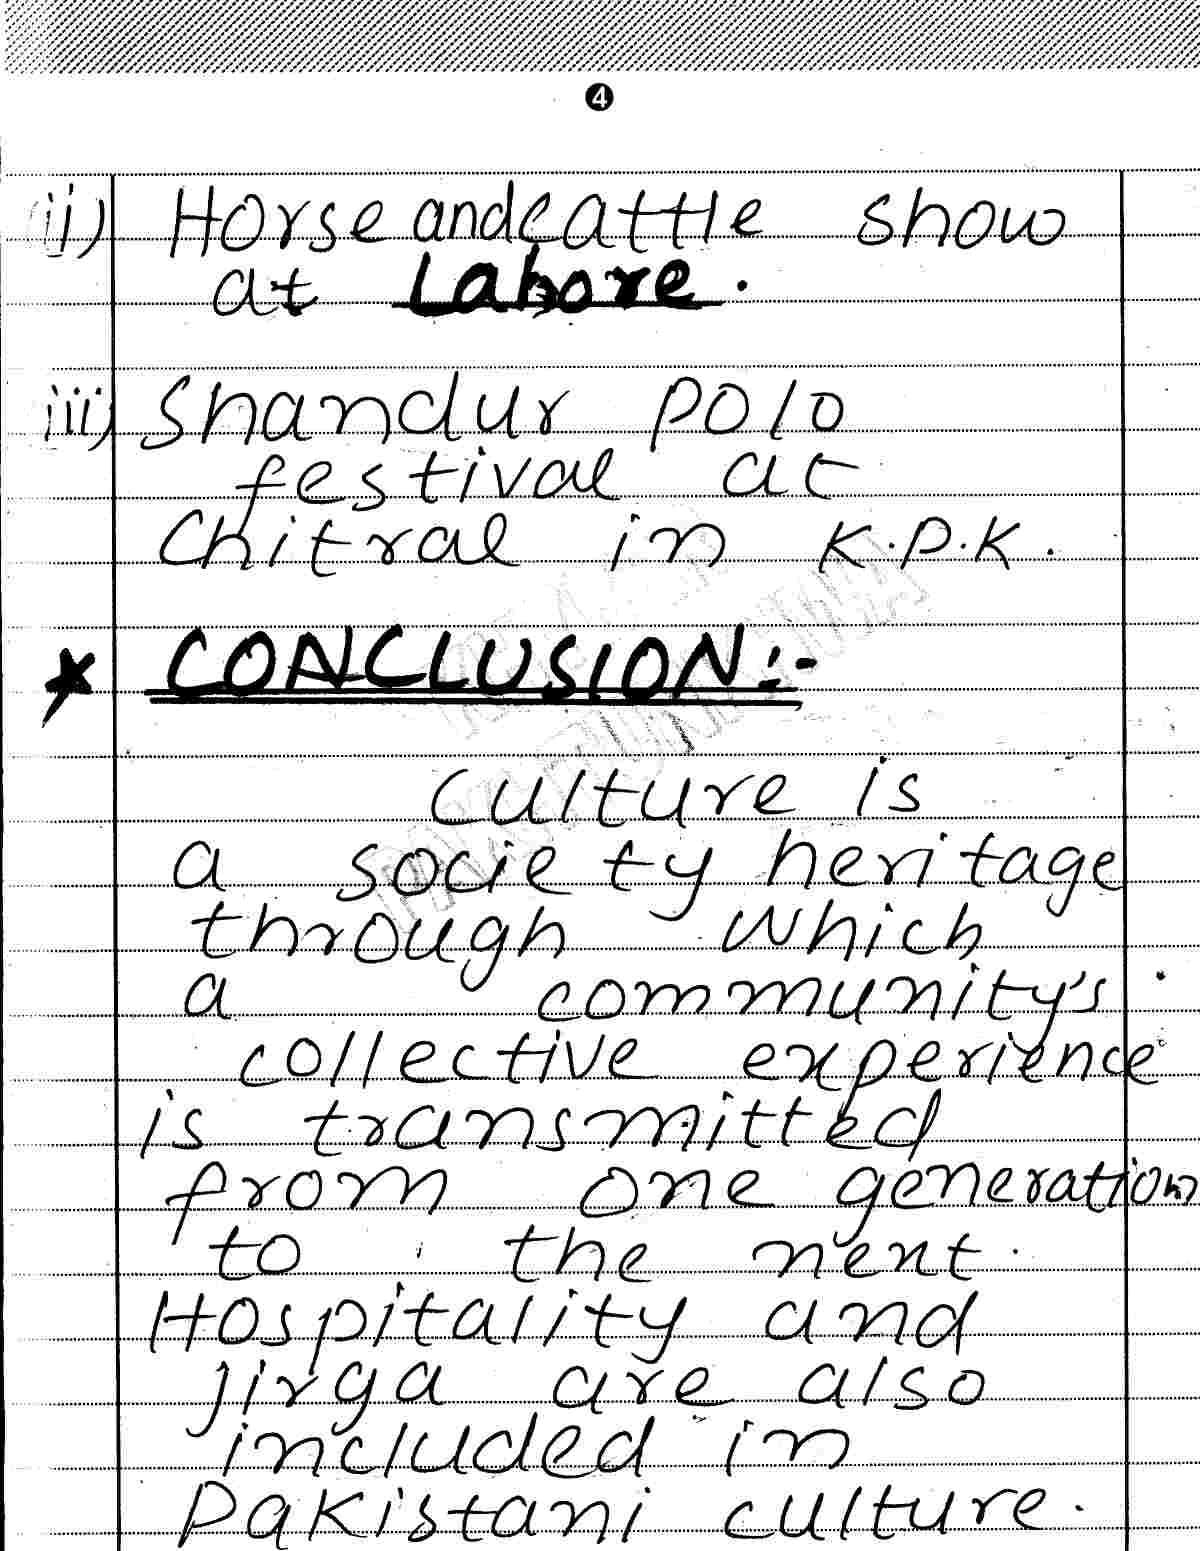 4
(ii) Horse and cattle show
at Lahore.
iii) Shandur polo
festival at
Chitral in K.P.K.
* CONCLUSION:-
Culture is
a society heritage
through which
a community's
collective experience
is transmitted
from one generation
to the next.
Hospitality and
jirga are also
included in
Pakistani culture.